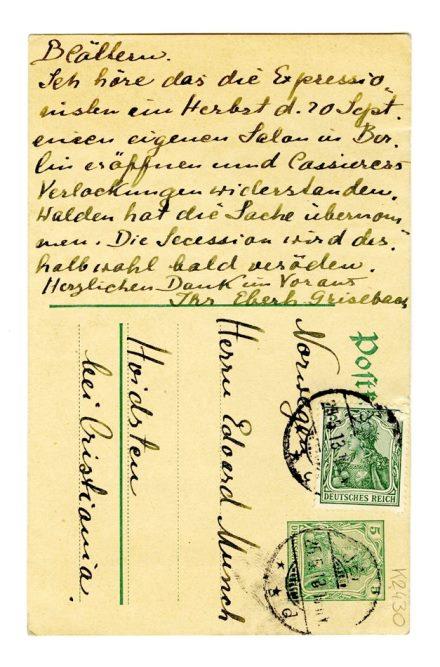 Blättern.
Ich höre das die Expressio
nisten ein Herbst d. 20 Sept.
einen eigenen Salon in Ber.
lin eröffnen und Cassierers
Verlockungen widerstanden.
Walden hat die Sache übernom
men. Die Secession wird des
halb wohl bald veröden.
Herzlichen Dank im Voraus
Ihr Eberh Grisebach
Postk
Norwegen
Herrn Edvard Munch
Hvidsten
bei Cristiania.
DEUTSCHES REICH
5
K2430